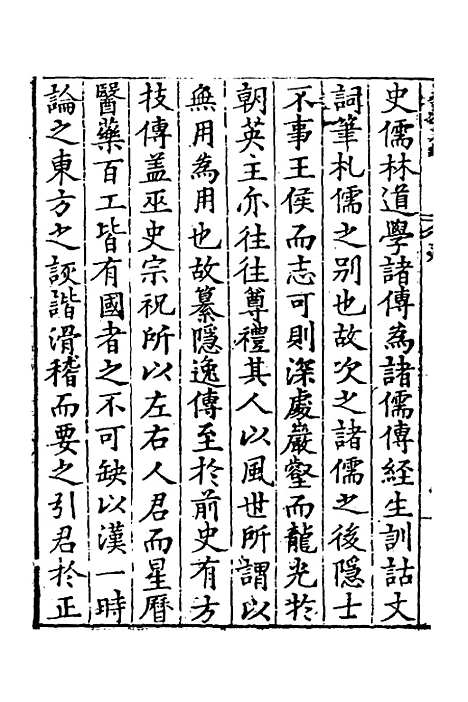 史儒林道學諸傳為諸儒傳經生訓詁文
詞筆札儒之别也故次之諸儒之後隱士
不事王侯而志可則深處巖壑而龍光於
朝英主亦往往尊禮其人以風世所謂以
無用為用也故纂隱逸傳至於前史有方
技傳盖巫史宗祝所以左右人君而星曆
醫藥百工皆有國者之不可缺以漢一時
論之東方之詼諧滑稽而要之引君於正